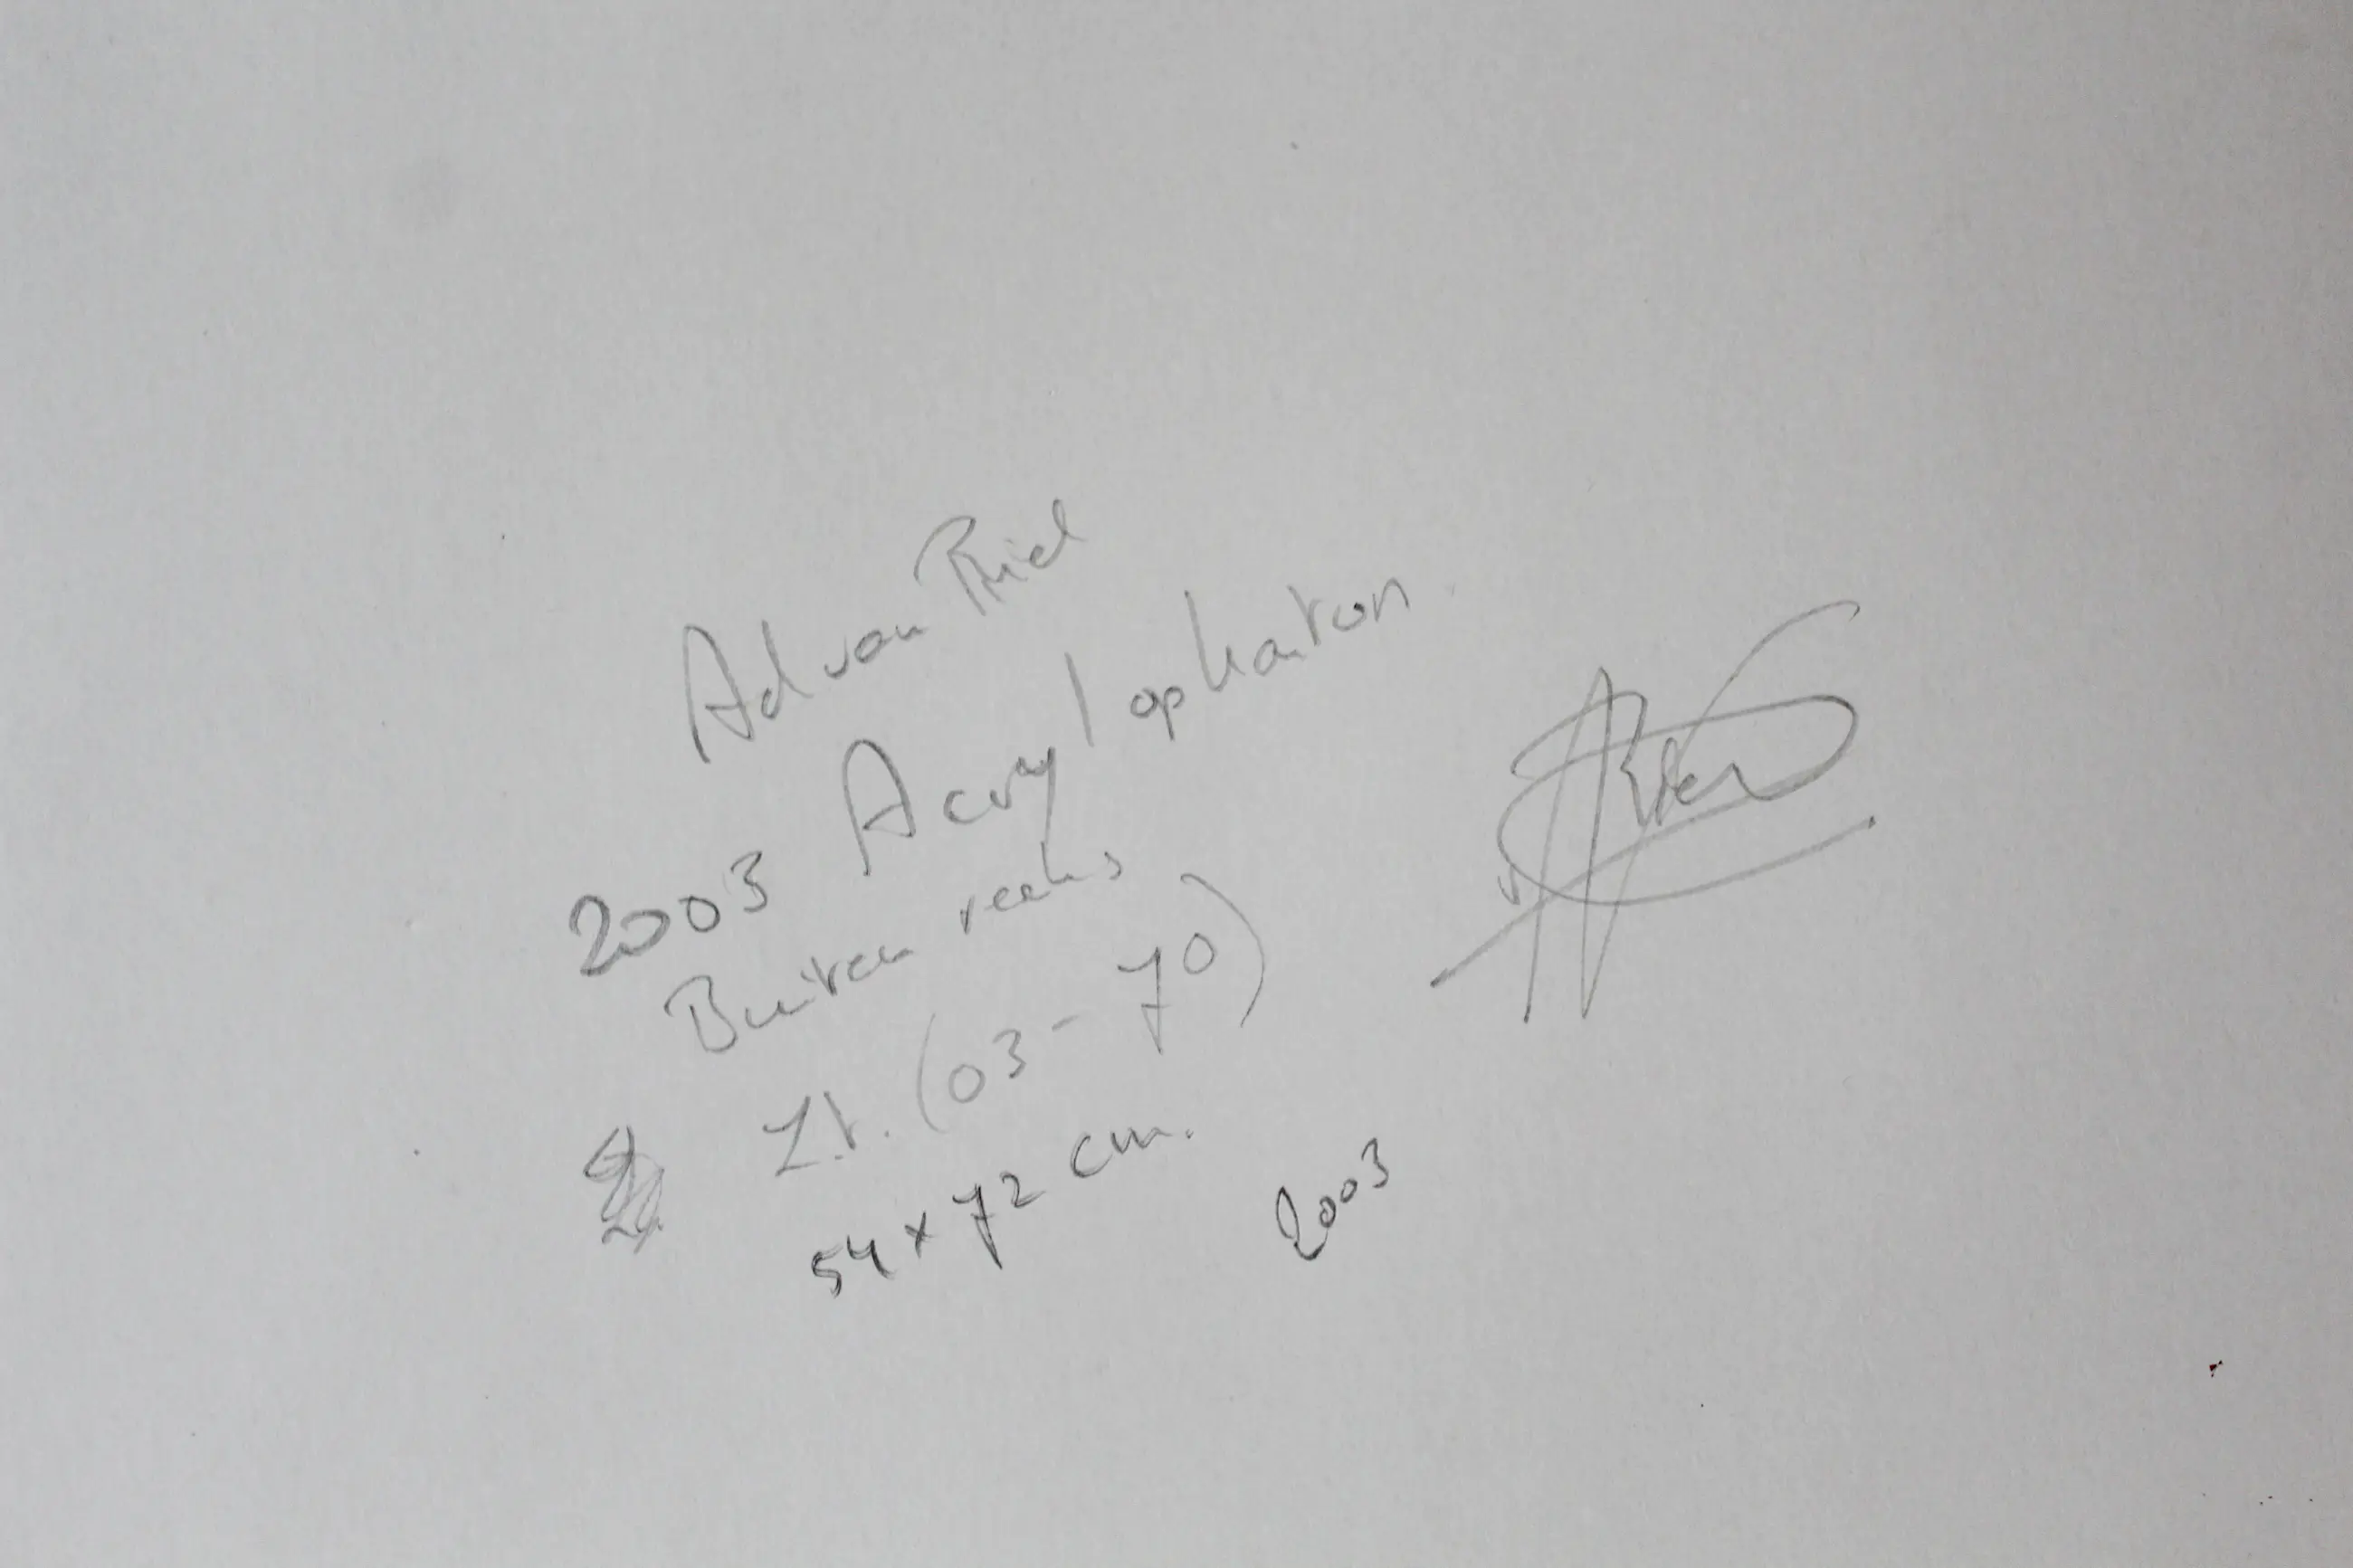 Ad van Riel
2003 Acryl op karton.
Buiten reeks
Z.t. (03-70)
54 x 72 cm.
2003